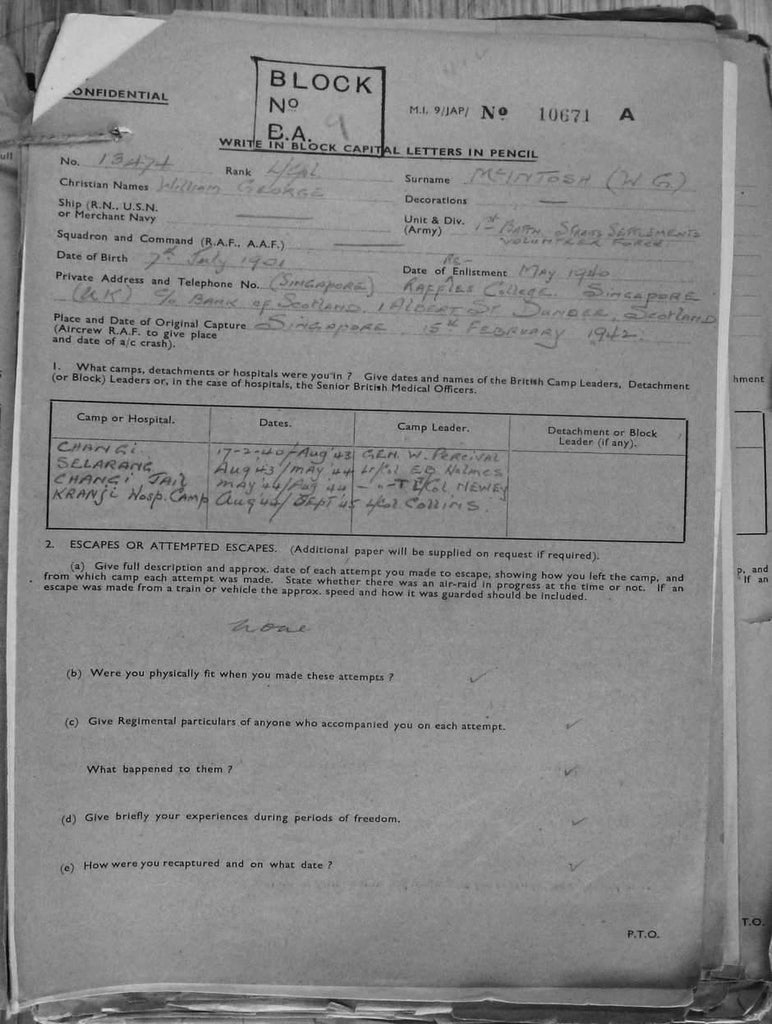 CONFIDENTIAL
BLOCK
No
E.A. 9
M.I. 9/JAP/ No 10671 A
WRITE IN BLOCK CAPITAL LETTERS IN PENCIL
No. 13474 Rank L/Cpl Surname McINTOSH (W G.)
Christian Names WILLIAM GEORGE Decorations —
Ship (R.N., U.S.N. or Merchant Navy —
Unit & Div. (Army) 1st BATTN STRAITS SETTLEMENTS VOLUNTEER FORCE
Squadron and Command (R.A.F., A.A.F.) —
Date of Birth 7th July 1901 RE- Date of Enlistment MAY 1940
Private Address and Telephone No. (SINGAPORE) RAFFLES COLLEGE. SINGAPORE
(UK) C/o BANK OF SCOTLAND, 1 ALBERT ST DUNDEE, SCOTLAND
Place and Date of Original Capture SINGAPORE 15th FEBRUARY 1942.
(Aircrew R.A.F. to give place
and date of a/c crash).
1. What camps, detachments or hospitals were you in ? Give dates and names of the British Camp Leaders, Detachment
(or Block) Leaders or, in the case of hospitals, the Senior British Medical Officers.
Camp or Hospital. Dates. Camp Leader. Detachment or Block Leader (if any).
CHANGI 17-2-40/Aug '43 GEN. W. PERCIVAL
SELARANG Aug '43/MAY '44 Lt/Col E.B. Holmes
CHANGI JAIL MAY '44/Aug '44 - " - Lt/Col NEWEY
KRANJI Hosp. Camp Aug '44/SEPT '45 L/Col Collins.
2. ESCAPES OR ATTEMPTED ESCAPES. (Additional paper will be supplied on request if required).
(a) Give full description and approx. date of each attempt you made to escape, showing how you left the camp, and
from which camp each attempt was made. State whether there was an air-raid in progress at the time or not. If an
escape was made from a train or vehicle the approx. speed and how it was guarded should be included.
None
(b) Were you physically fit when you made these attempts ? ✓
(c) Give Regimental particulars of anyone who accompanied you on each attempt. ✓
What happened to them ? ✓
(d) Give briefly your experiences during periods of freedom. ✓
(e) How were you recaptured and on what date ? ✓
P.T.O.
hment
p, and
If an
T.O.